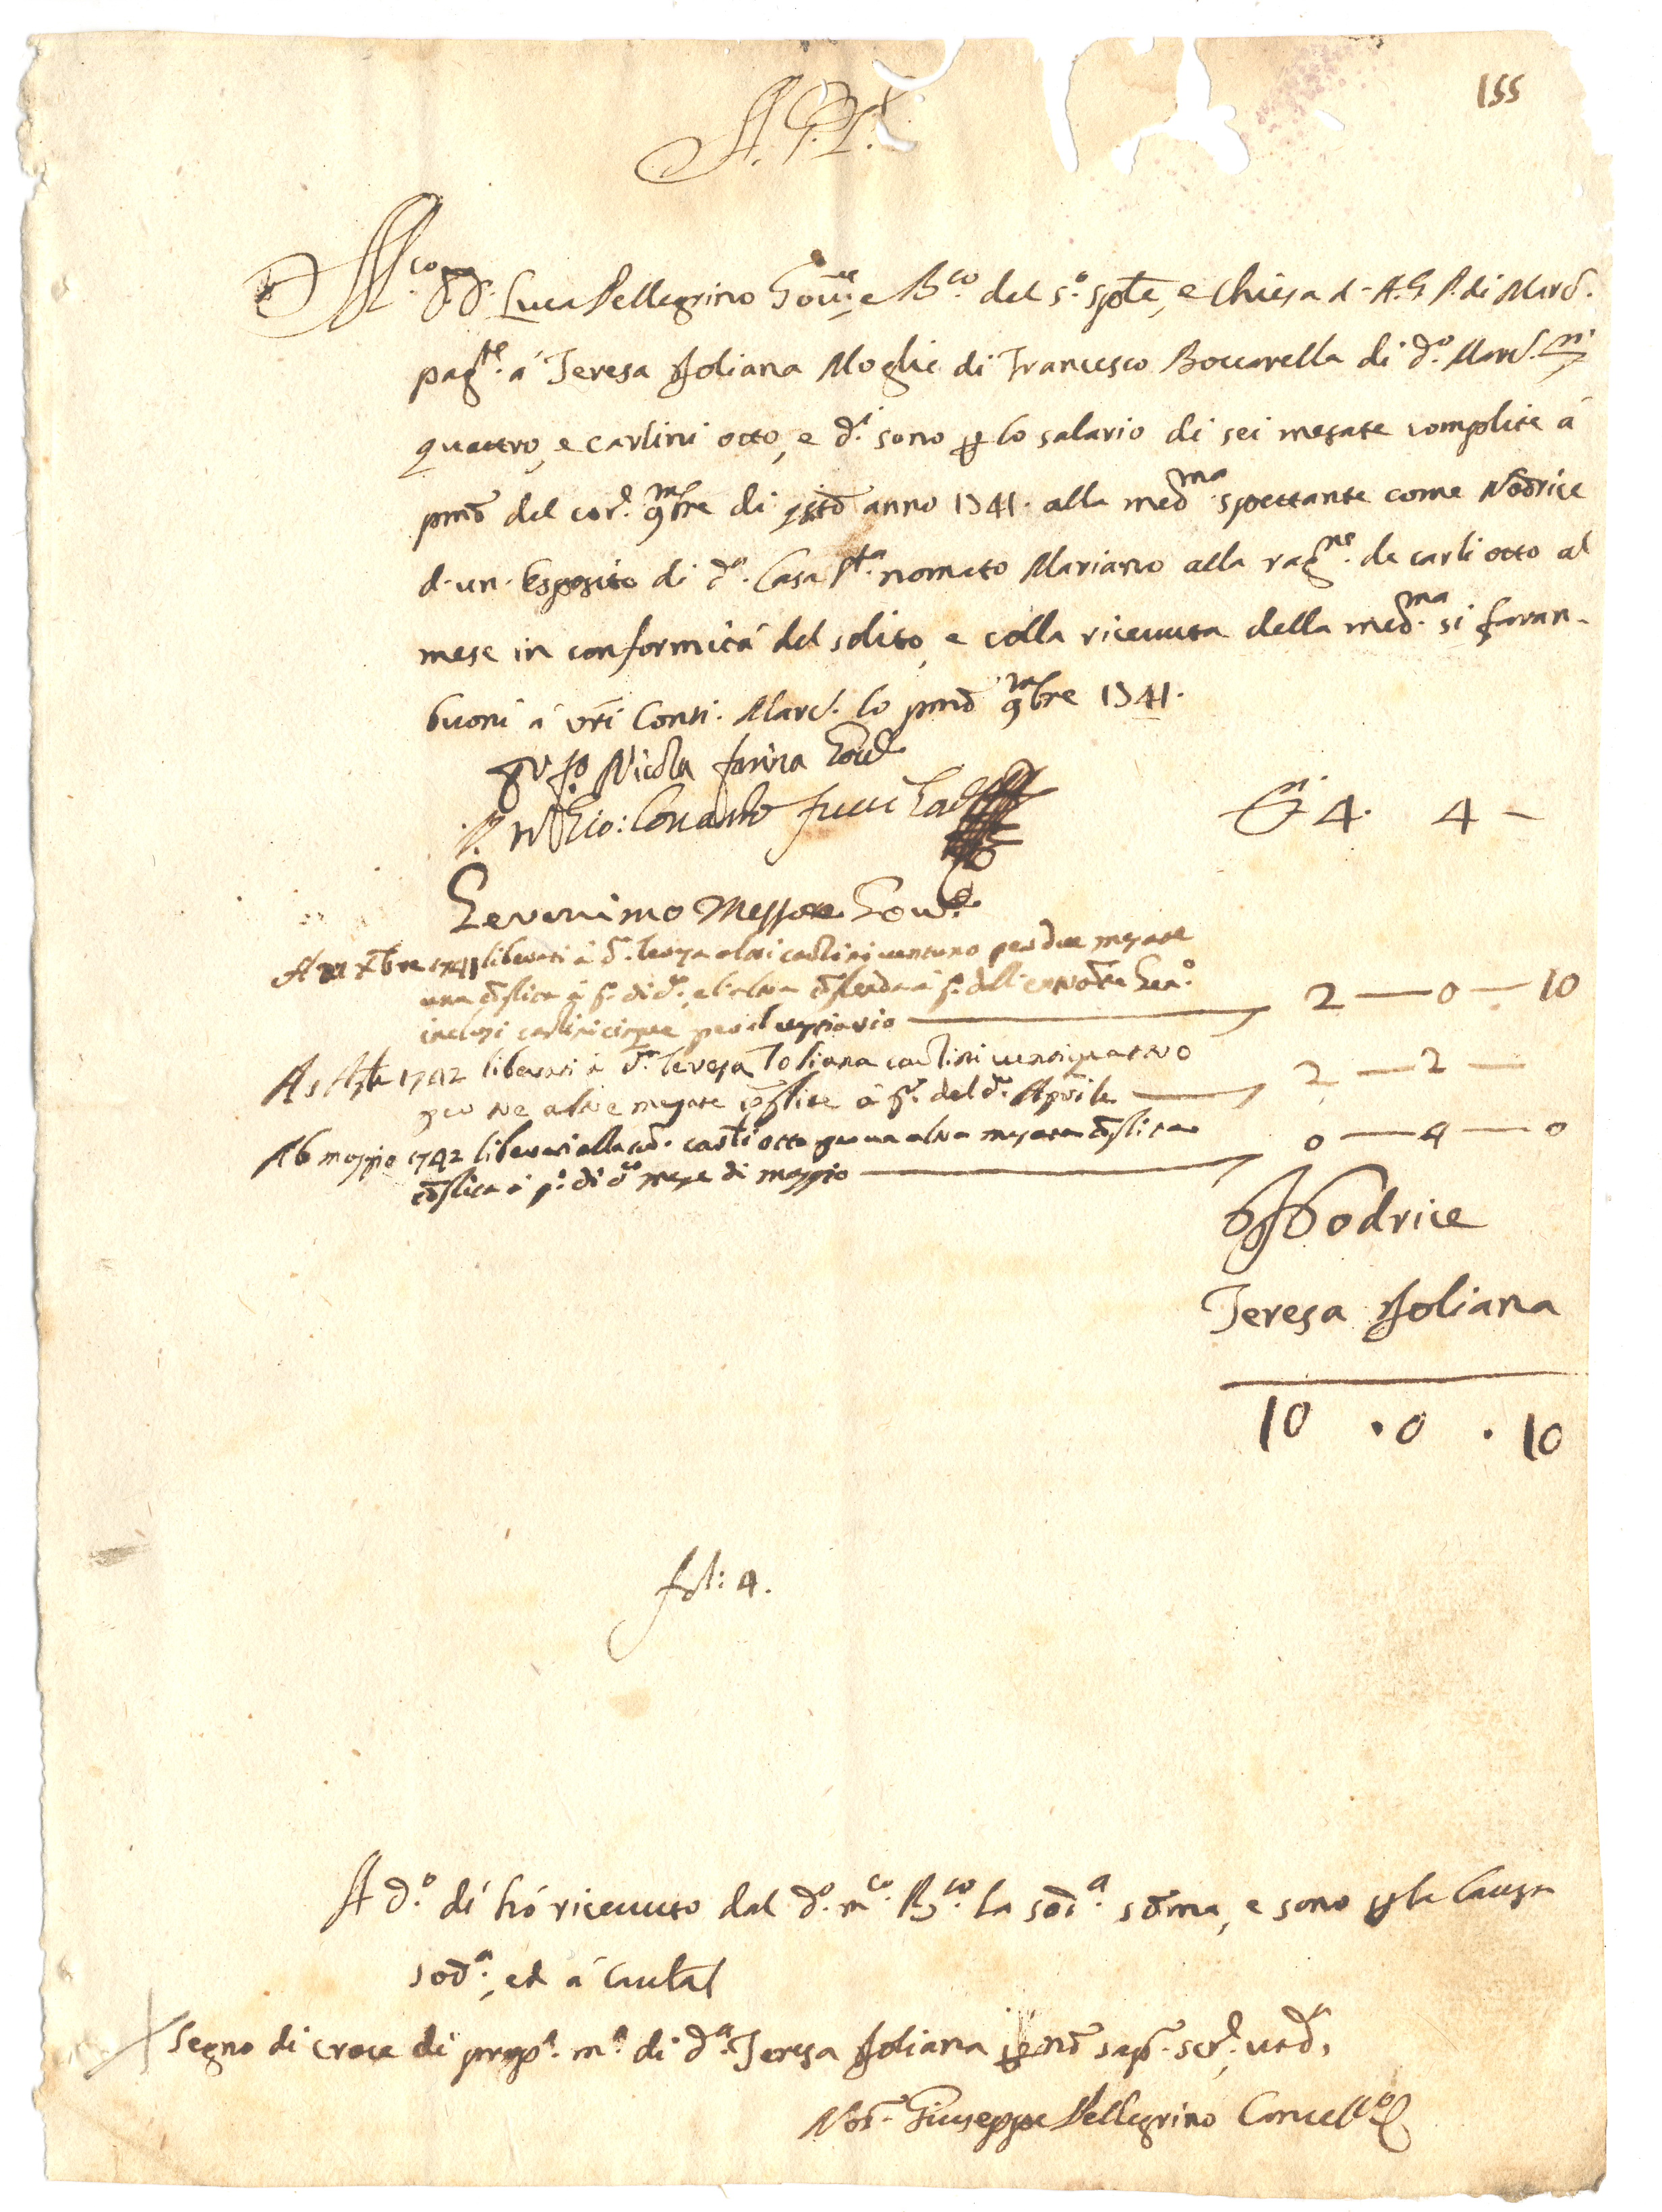 155
A. G. P.
M.co D.D. Luca Pellegrino Gov.re e B.co del S.o Sple, e Chiesa d. A. G. P. di Marc.
pag.te á Teresa Joliana Moglie di Francesco Boccarella di d.o Marc. D.ti
quattro, e carlini otto, e d.i sono p lo salario di sei mesate complite á
pmo del cor.e 9mbre di qsto anno 1741. alla med.ma spettante come Nodrice
d. un. Esposito di d.a Casa S.ta nomato Mariano alla rag.ne de carli otto al
mese in conformitá del solito, e colla ricevuta della med.ma si faran-
buoni á vri Conti. Marc. lo pmo 9mbre 1741.
Nicola farina Gov.re
Gio: Fucci Gov.re
D.ti 4. 4 -
Geronimo Messore Gov.re
A 21 Xbre 1741 liberati á d.a Teresa altri carlini ventuno per due mesate
una cplita á p.o di d.o, e l'altra á p.o dell' entrante Gen.o
inclusi carlini cinque per il vestiario — 2 — 0 — 10
A Aple 1742 liberati á d.a Teresa Toliana carlini ventiquattro
per tre altre mesate cplite á p.o del d.o Aprile — 2 — 2 —
A 6 maggio 1742 liberati alla sud.a carli otto per una altra mesata cplita
cplita á p.o di d.o mese di maggio — 0 — 4 — 0
Nodrice
Teresa Joliana
10 . 0 . 10
fol: 4.
A d.o dí hó ricevuto dal d.o m.co B.co la sod.a soma, e sono p la Causa
sod.a, ed á Cautel
+ Segno di croce di prop.a m.o di d.a Teresa Joliana p nō sap.e scr.e
Not.r Giuseppe Pellegrino Cancell.o